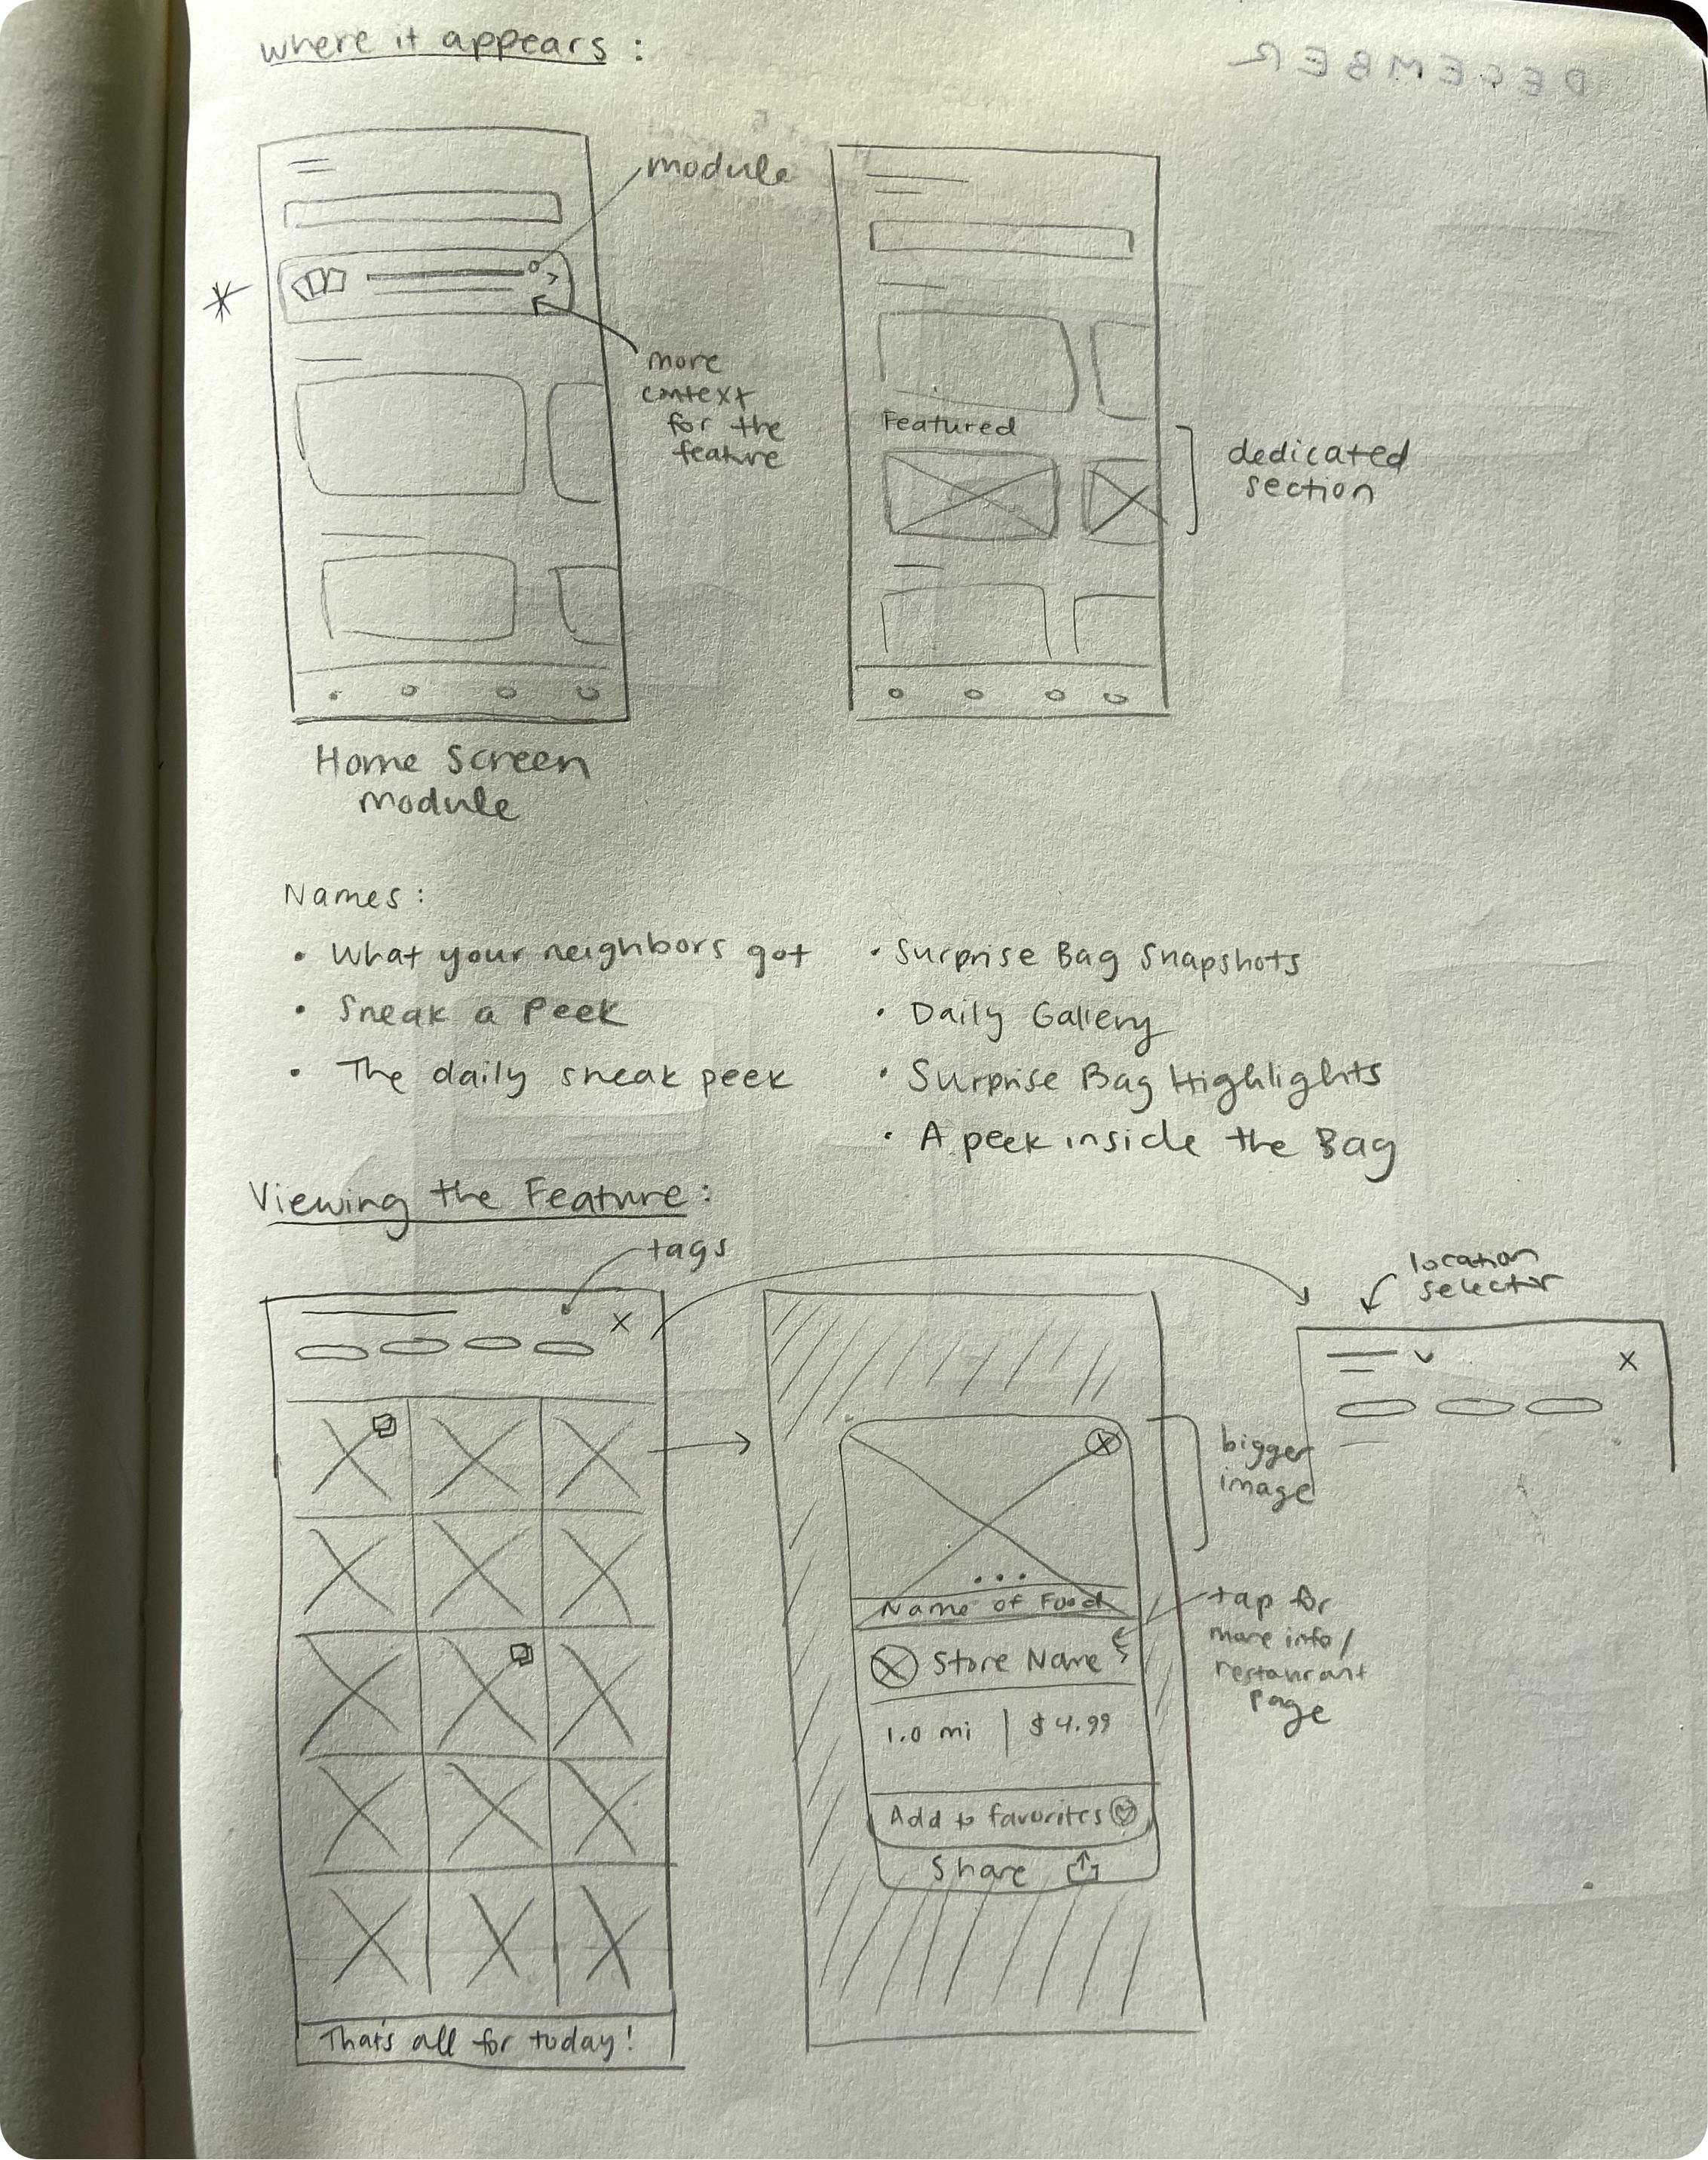 where it appears :
DECEMBER
module
more
context
for the
feature
Featured
dedicated
section
Home Screen
module
Names:
• What your neighbors got
• Sneak a Peek
• The daily sneak peek
• Surprise Bag Snapshots
• Daily Gallery
• Surprise Bag Highlights
• A peek inside the Bag
Viewing the Feature:
tags
X
That's all for today!
bigger
image
Name of Food
Store Name
tap for
more info/
restaurant
page
1.0 mi | $4.99
Add to favorites
Share
location
selector
X